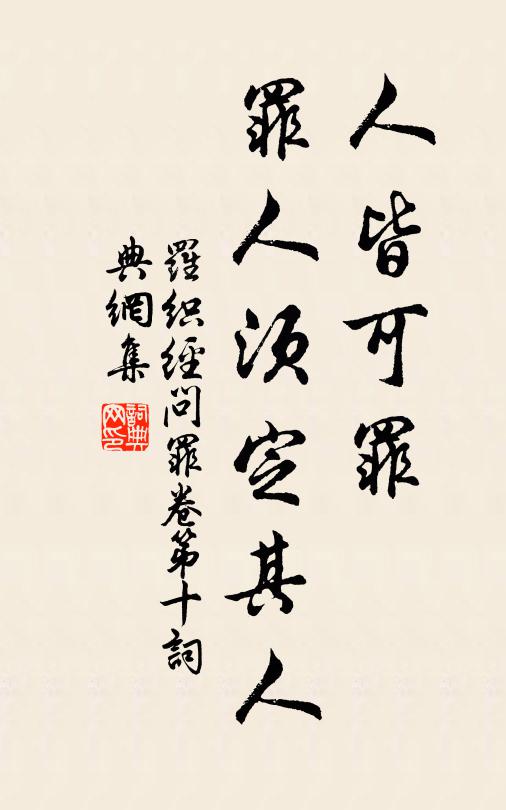 人皆可罪
罪人须定其人
羅織經問罪卷第十詞
典網集
詞典網印